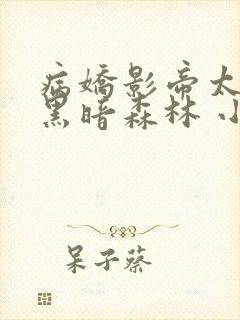 病嬌影帝太
黑暗森林 小
呆子蔡